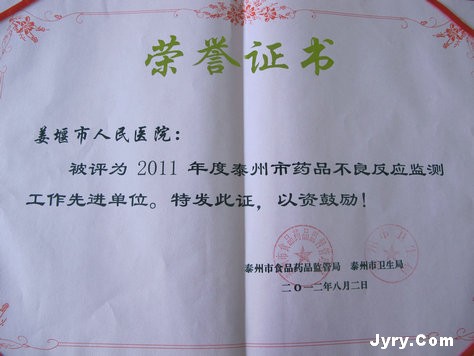 荣誉证书
姜堰市人民医院：
被评为 2011 年度泰州市药品不良反应监测
工作先进单位。特发此证，以资鼓励！
泰州市食品药品监管局 泰州市卫生局
二〇一二年八月二日
Jyry.Com